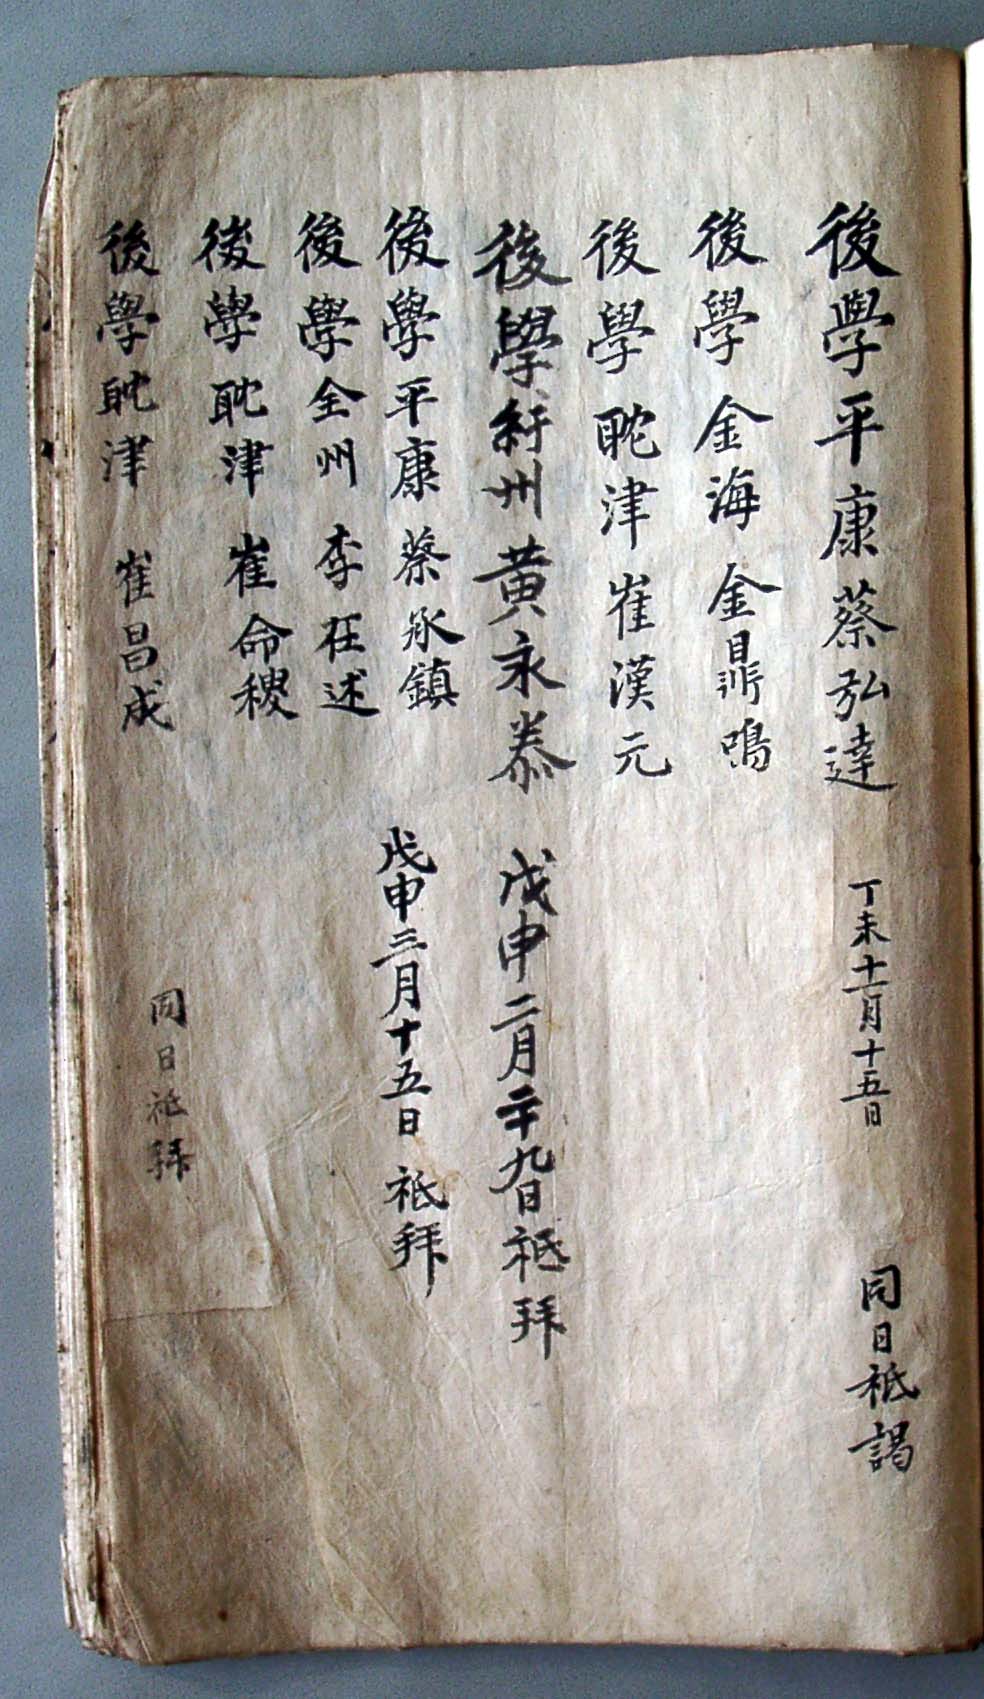 後學平康蔡弘達 丁未十一月十五日 同日祗謁
後學金海金鼎鳴
後學耽津崔漢元
後學紆州黃永泰 戊申二月二十九日祗拜
後學平康蔡永鎮 戊申三月十五日祗拜
後學全州李在述
後學耽津崔命稷
後學耽津崔昌成 同日祗拜